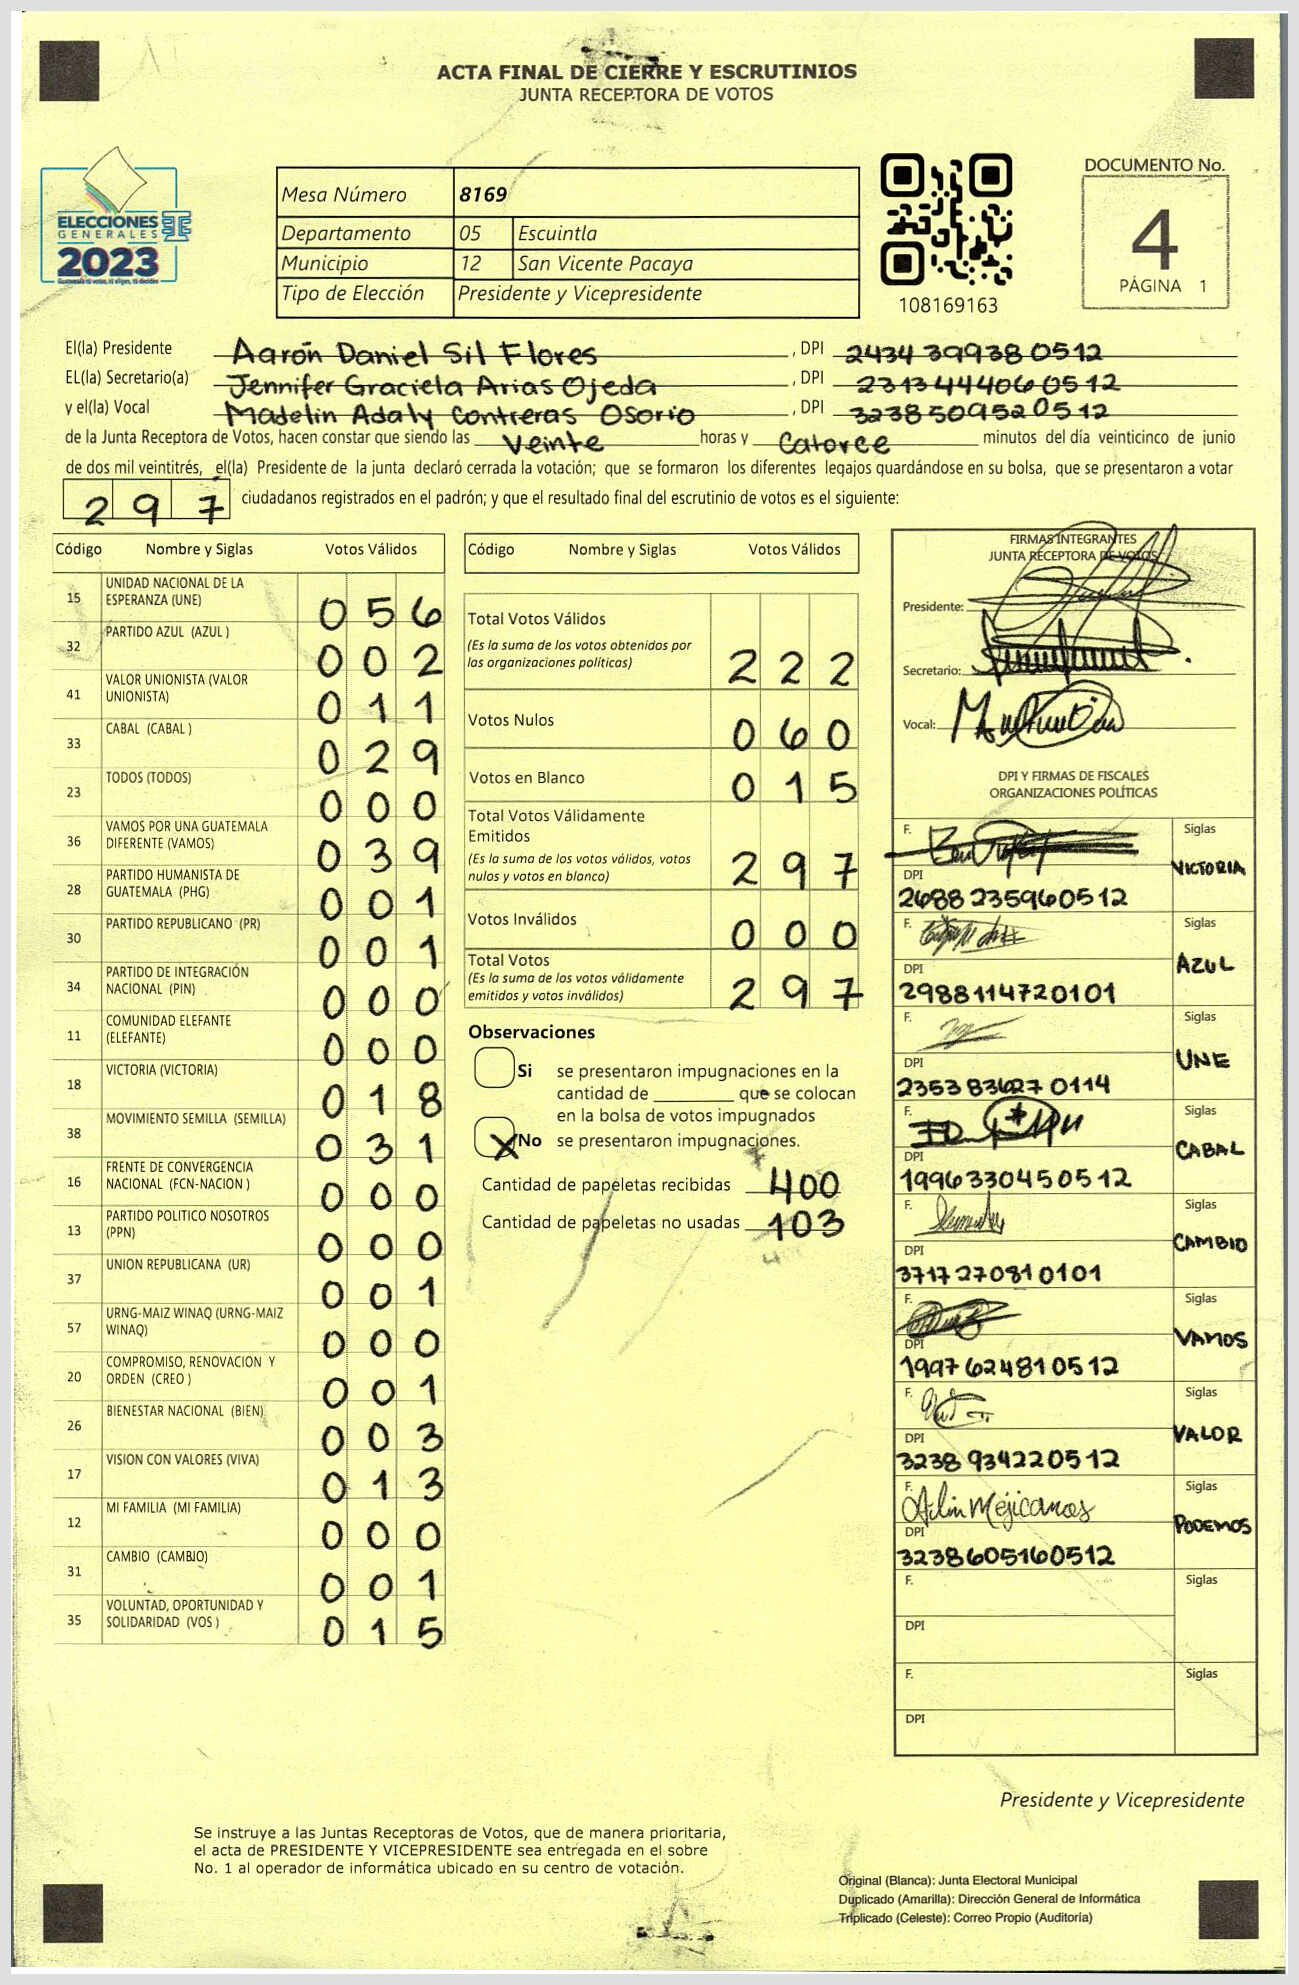 ACTA FINAL DE CIERRE Y ESCRUTINIOS
JUNTA RECEPTORA DE VOTOS
ELECCIONES
GENERALES
2023
Mesa Número 8169
Departamento 05 Escuintla
Municipio 12 San Vicente Pacaya
Tipo de Elección Presidente y Vicepresidente
108169163
DOCUMENTO No.
4
PÁGINA 1
El(la) Presidente Aarón Daniel Sil Flores, DPI 2434 39938 0512
EL(la) Secretario(a) Jennifer Graciela Arias Ojeda, DPI 2313 44406 0512
y el(la) Vocal Madelin Adaly Contreras Osorio, DPI 3238 50952 0512
de la Junta Receptora de Votos, hacen constar que siendo las Veinte horas y Catorce minutos del día veinticinco de junio
de dos mil veintitrés, el(la) Presidente de la junta declaró cerrada la votación; que se formaron los diferentes legajos guardándose en su bolsa, que se presentaron a votar
297 ciudadanos registrados en el padrón; y que el resultado final del escrutinio de votos es el siguiente:
Código Nombre y Siglas Votos Válidos
15 UNIDAD NACIONAL DE LA ESPERANZA (UNE) 056
32 PARTIDO AZUL (AZUL ) 002
41 VALOR UNIONISTA (VALOR UNIONISTA) 011
33 CABAL (CABAL ) 029
23 TODOS (TODOS) 000
36 VAMOS POR UNA GUATEMALA DIFERENTE (VAMOS) 039
28 PARTIDO HUMANISTA DE GUATEMALA (PHG) 001
30 PARTIDO REPUBLICANO (PR) 001
34 PARTIDO DE INTEGRACIÓN NACIONAL (PIN) 000
11 COMUNIDAD ELEFANTE (ELEFANTE) 000
18 VICTORIA (VICTORIA) 018
38 MOVIMIENTO SEMILLA (SEMILLA) 031
16 FRENTE DE CONVERGENCIA NACIONAL (FCN-NACION ) 000
13 PARTIDO POLITICO NOSOTROS (PPN) 000
37 UNION REPUBLICANA (UR) 001
57 URNG-MAIZ WINAQ (URNG-MAIZ WINAQ) 000
20 COMPROMISO, RENOVACION Y ORDEN (CREO ) 001
26 BIENESTAR NACIONAL (BIEN) 003
17 VISION CON VALORES (VIVA) 013
12 MI FAMILIA (MI FAMILIA) 000
31 CAMBIO (CAMBIO) 001
35 VOLUNTAD, OPORTUNIDAD Y SOLIDARIDAD (VOS ) 015
Código Nombre y Siglas Votos Válidos
Total Votos Válidos
(Es la suma de los votos obtenidos por
las organizaciones políticas) 222
Votos Nulos 060
Votos en Blanco 015
Total Votos Válidamente
Emitidos
(Es la suma de los votos válidos, votos
nulos y votos en blanco) 297
Votos Inválidos 000
Total Votos
(Es la suma de los votos válidamente
emitidos y votos inválidos) 297
Observaciones
Si se presentaron impugnaciones en la
cantidad de ________ que se colocan
en la bolsa de votos impugnados
X No se presentaron impugnaciones.
Cantidad de papeletas recibidas 400
Cantidad de papeletas no usadas 103
FIRMAS INTEGRANTES
JUNTA RECEPTORA DE VOTOS
Presidente:
Secretario:
Vocal:
DPI Y FIRMAS DE FISCALES
ORGANIZACIONES POLÍTICAS
F. Siglas
VICTORIA
DPI
2688 23596 0512
F. Siglas
AZUL
DPI
2988114720101
F. Siglas
UNE
DPI
2353 83627 0114
F. Siglas
CABAL
DPI
1996330450512
F. Siglas
CAMBIO
DPI
3717 27081 0101
F. Siglas
VAMOS
DPI
1997 62481 0512
F. Siglas
VALOR
DPI
3238 934220512
F. Ailin Mejicanos Siglas
PODEMOS
DPI
3238605160512
F. Siglas
DPI
F. Siglas
DPI
Presidente y Vicepresidente
Se instruye a las Juntas Receptoras de Votos, que de manera prioritaria,
el acta de PRESIDENTE Y VICEPRESIDENTE sea entregada en el sobre
No. 1 al operador de informática ubicado en su centro de votación.
Original (Blanca): Junta Electoral Municipal
Duplicado (Amarilla): Dirección General de Informática
Triplicado (Celeste): Correo Propio (Auditoría)